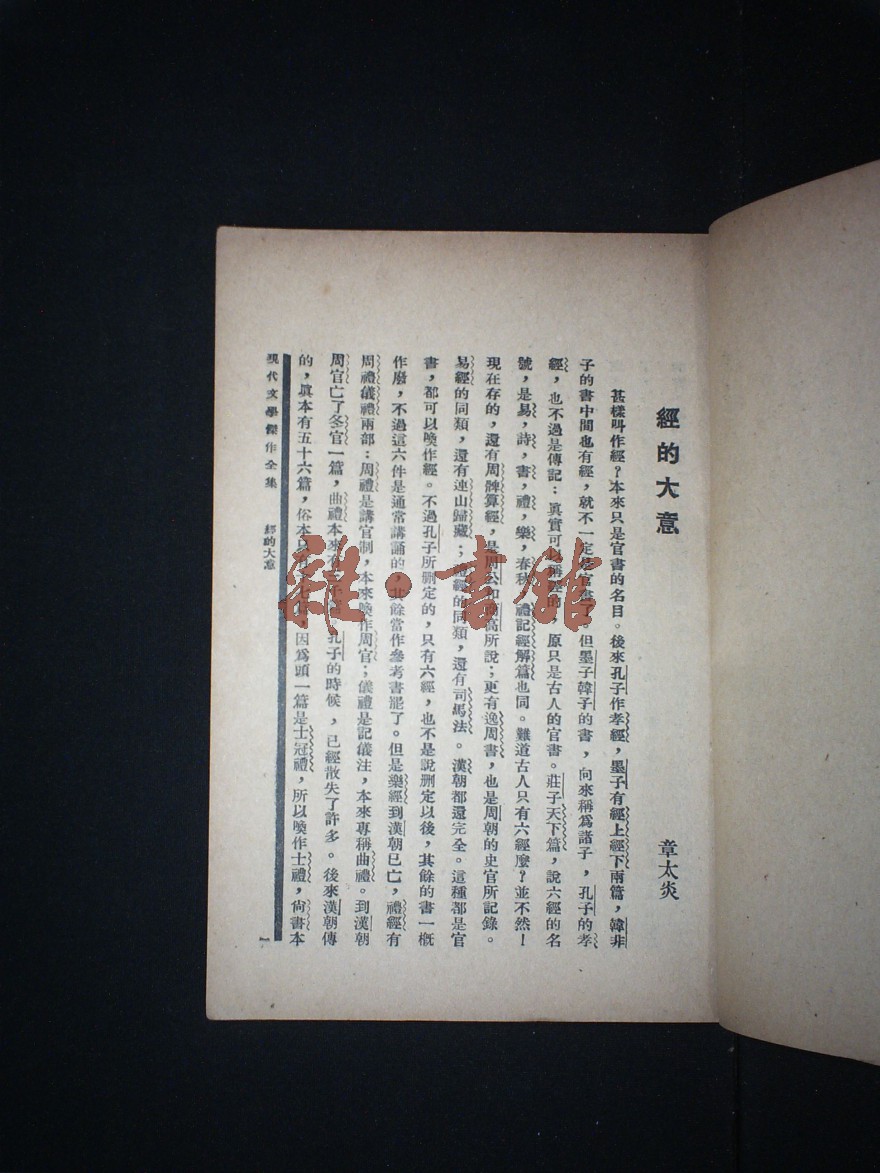 經的大意
章太炎
甚樣叫作經?本來只是官書的名目。後來孔子作孝經,墨子有經上經下兩篇,韓非
子的書中間也有經,就不一定是官書了。但墨子韓子的書,向來稱爲諸子,孔子的孝
經,也不過是傳記:眞實可以稱經的,原只是古人的官書。莊子天下篇,說六經的名
號,是易,詩,書,禮,樂,春秋。禮記經解篇也同。難道古人只有六經麼?並不然!
現在存的,還有周髀算經,是周公和商高所說;更有逸周書,也是周朝的史官所記錄。
易經的同類,還有連山歸藏;禮經的同類,還有司馬法。漢朝都還完全。這種都是官
書,都可以喚作經。不過孔子所删定的,只有六經,也不是說删定以後,其餘的書一槪
作廢,不過這六件是通常講誦的,其餘當作參考書罷了。但是樂經到漢朝已亡,禮經有
周禮儀禮兩部:周禮是講官制,本來喚作周官;儀禮是記儀注,本來專稱曲禮。到漢朝
周官亡了冬官一篇,曲禮本來有 孔子的時候,已經散失了許多。後來漢朝傳
的,眞本有五十六篇,俗本只有十七篇,因爲頭一篇是士冠禮,所以喚作士禮,尙書本
現代文學傑作全集 經的大意
一
雜·書館